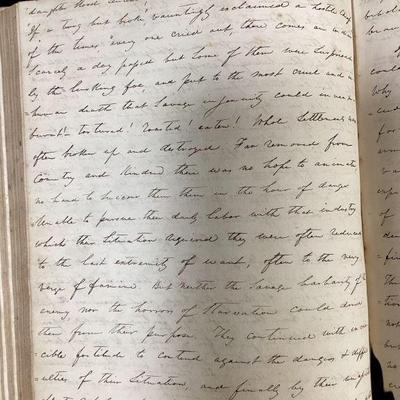 daughter stood
If a tung but broke! vauntingly exclaimed a hostile Chief
of the times "every one cried out, there comes an indian
Scarcely a day passed but some of them were surprised
by the lurking foe, and put to the most cruel and in
human death that Savage ingenuity could invent
burnt! tortured! roasted! eaten! Whole Settlements were
often broken up and destroyed. Far removed from
Country and Kindred there was no hope to animate
no hand to succour them in the hour of danger
Unable to pursue their daily labor with that industry
which their Situation required they were often reduced
to the last extremity of want, often to the very
verge of famine But neither the Savage barbarity of the
enemy nor the horrors of Starvation could deter
them from their purpose. They continued with invin
=cible fortitude to contend against the dangers & diffi
=culties of their Situation, and finally by their